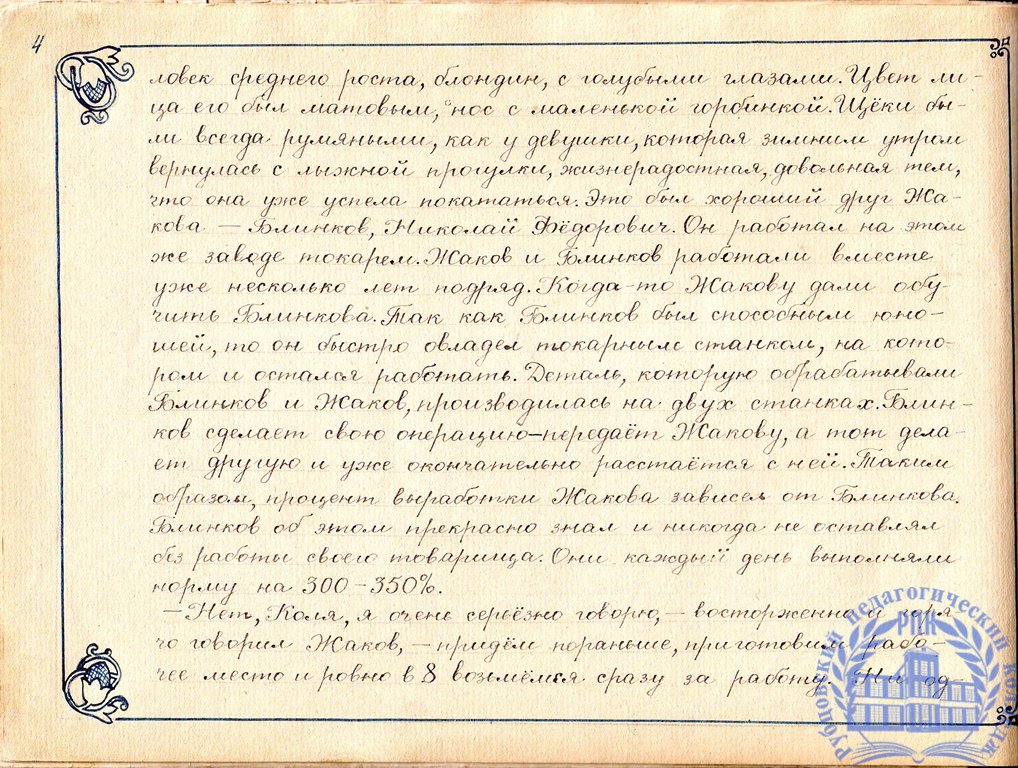 4
ловек среднего роста, блондин, с голубыми глазами. Цвет ли-
ца его был матовым, нос с маленькой горбинкой. Щёки бы-
ли всегда румяными, как у девушки, которая зимним утром
вернулась с лыжной прогулки, жизнерадостная, довольная тем,
что она уже успела покататься. Это был хороший друг Жа-
кова — Блинков, Николай Фёдорович. Он работал на этом
же заводе токарем. Жаков и Блинков работали вместе
уже несколько лет подряд. Когда-то Жакову дали обу-
чить Блинкова. Так как Блинков был способным юно-
шей, то он быстро овладел токарным станком, на кото-
ром и остался работать. Деталь, которую обрабатывали
Блинков и Жаков, производилась на двух станках. Блин-
ков сделает свою операцию — передаёт Жакову, а тот дела-
ет другую и уже окончательно расстаётся с ней. Таким
образом, процент выработки Жакова зависел от Блинкова.
Блинков об этом прекрасно знал и никогда не оставлял
без работы своего товарища. Они каждый день выполняли
норму на 300-350%.
— Нет, Коля, я очень серьёзно говорю, — восторженно и горя-
чо говорил Жаков, — придём пораньше, приготовим рабо-
чее место и ровно в 8 возьмёмся сразу за работу. Ни од-
Рубцовский педагогический колледж
РПК